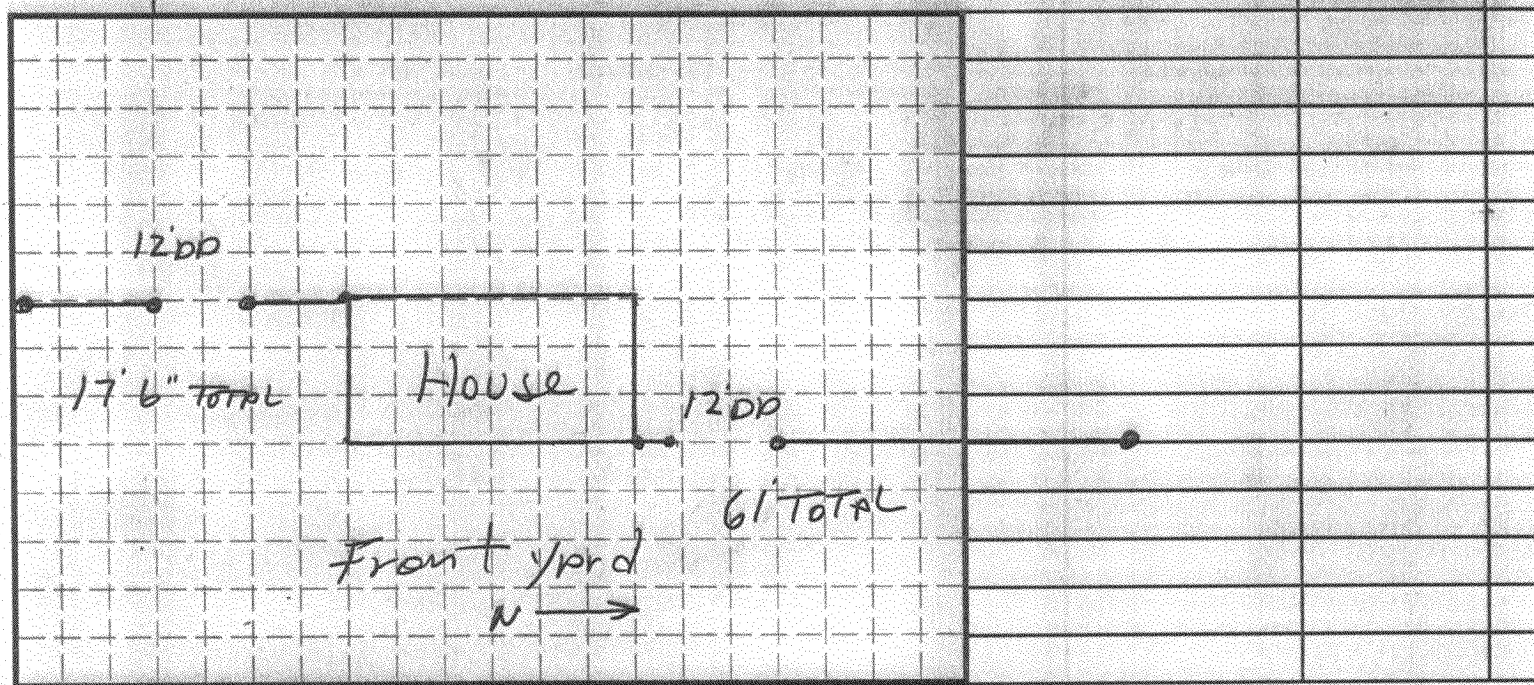 12' DD
17' 6" TOTAL
House
12' DD
61' TOTAL
Front Yard
N